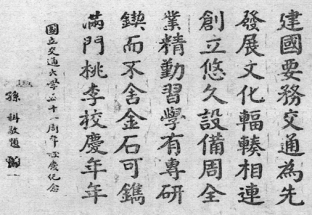 建國要務交通為先
發展文化輻輳相連
創立悠久設備周全
業精勤習學有專研
鍥而不舍金石可鐫
滿門桃李校慶年年
國立交通大學六十一周年校慶紀念
孫科敬題